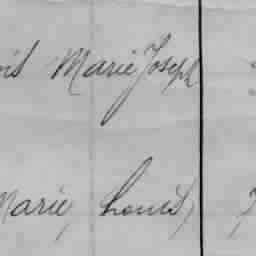 Marie Joseph
Marie, Louis,